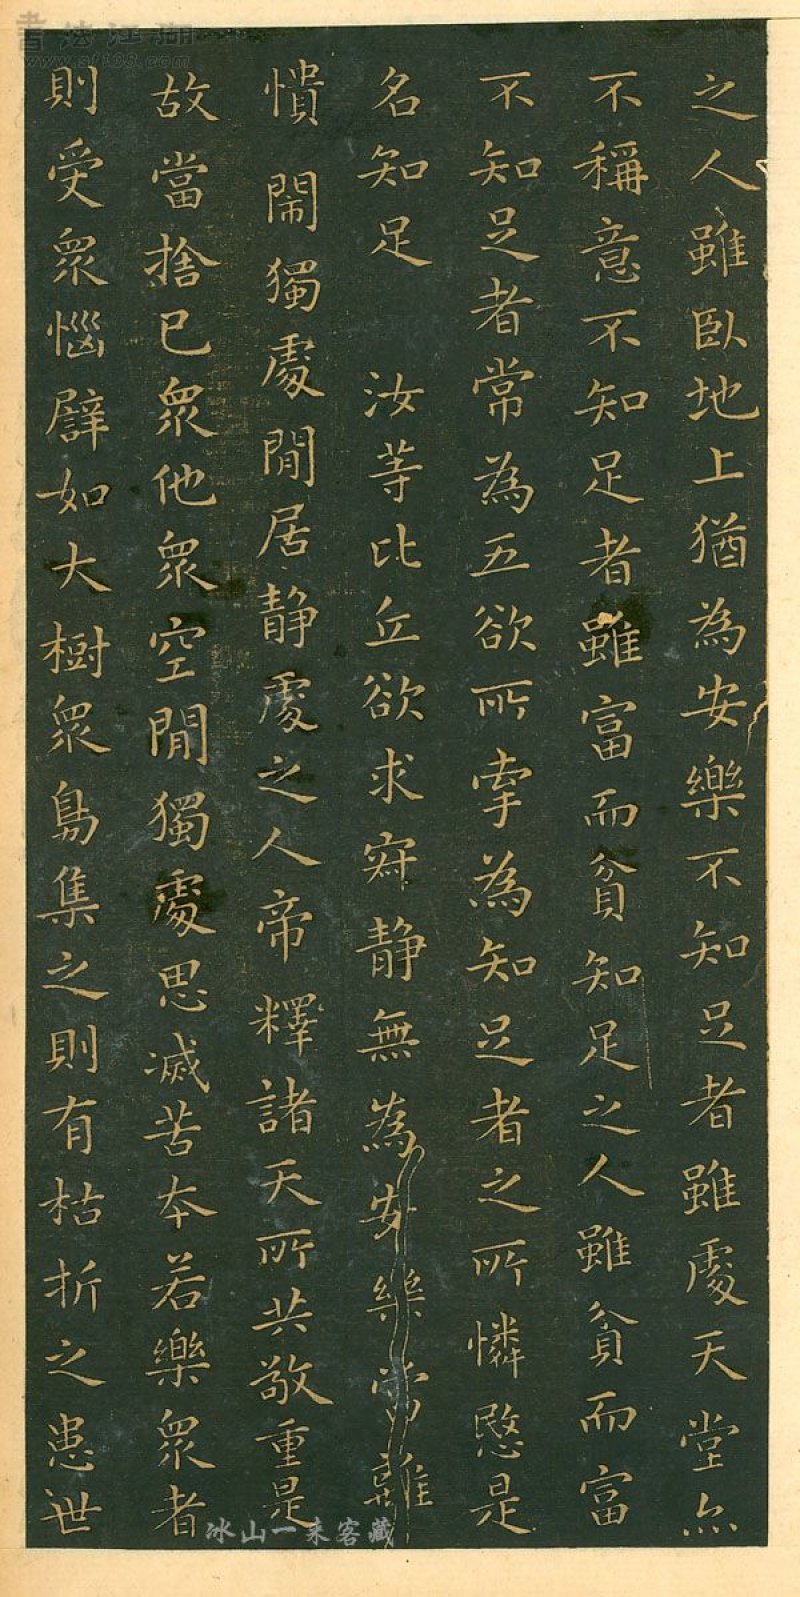 之人雖臥地上猶為安樂不知足者雖處天堂亦
不稱意不知足者雖富而貧知足之人雖貧而富
不知足者常為五欲所牽為知足者之所憐愍是
名知足 汝等比丘欲求寂靜無為安樂當離
憒閙獨處閒居靜處之人帝釋諸天所共敬重是
故當捨已眾他眾空閒獨處思滅苦本若樂眾者
則受眾惱譬如大樹眾鳥集之則有枯折之患世
書法江湖
冰山一来客藏